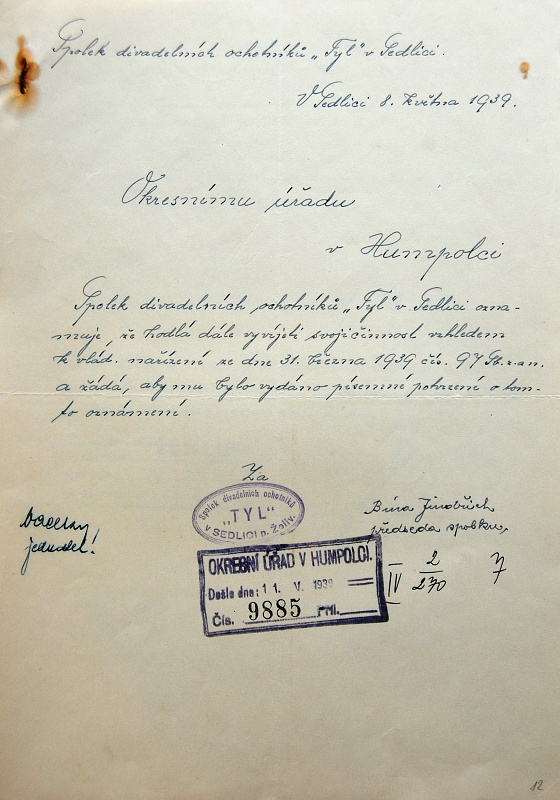 Spolek divadelních ochotníků „Tyl" v Sedlici.
V Sedlici 8. května 1939.
Okresnímu úřadu
v Humpolci
Spolek divadelních ochotníků „Tyl" v Sedlici ozna-
muje, že hodlá dále vyvíjeti svoji činnost vzhledem
k vlád. nařízení ze dne 31. března 1939 čís. 97 Sb. z. a n.
a žádá, aby mu bylo vydáno písemné potvrzení o tom-
to oznámení.
Za
Spolek divadelních ochotníků
„TYL"
V SEDLICI p. Želiv.
Bína Jindřich
předseda spolku,
jednatel.
OKRESNÍ ÚŘAD V HUMPOLCI.
Došlo dne: 11. V. 1939
Čís. 9885 Příl.
IV 2
270
7
12